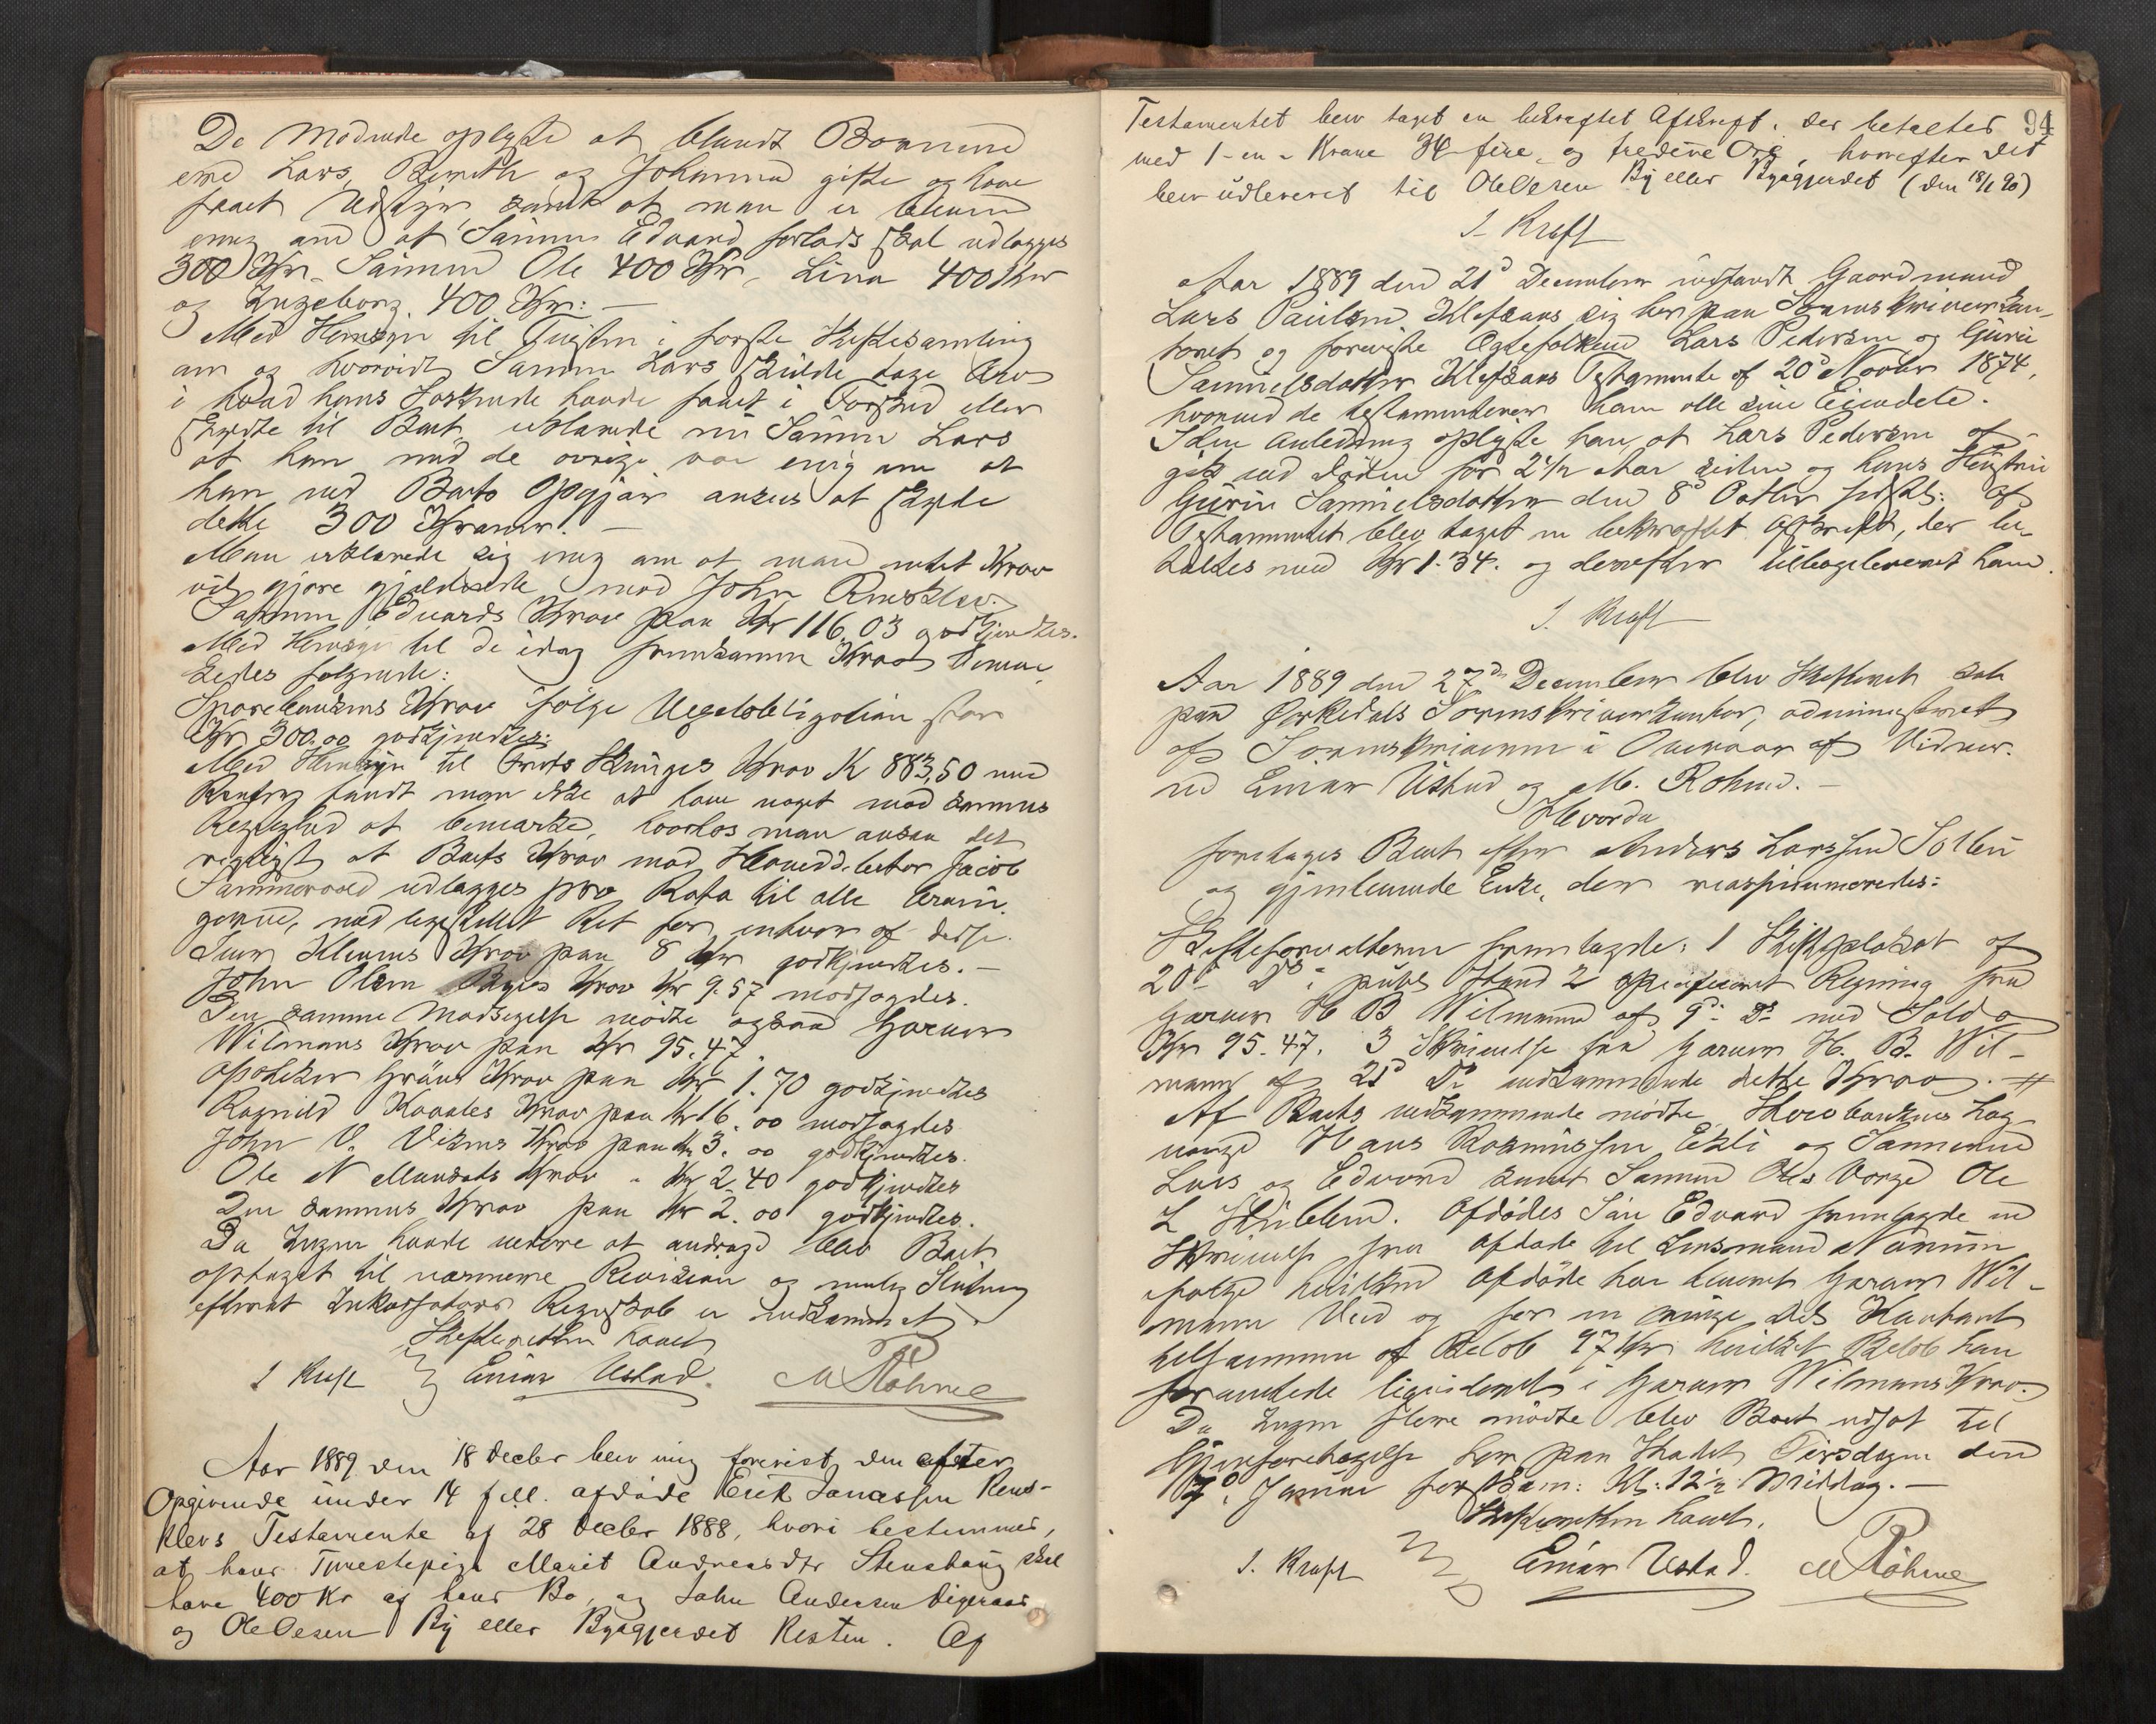 De Mødende oplyste at blandt Børnene
ere Lars, Bereth og Johanna gifte og have
faaet Udstyr, samt at man er bleven
enig om at Sønnen Edvard forlods skal udlægges
300 Kr. Sønnen Ole 400 Kr. Lina 400 Kr
og Ingeborg 400 Kr: —
Med Hensyn til Tvisten i første Skiftesamling
om og hvorvidt Sønnen Lars skulde tage Arv
i hvad hans Søskende havde faaet i Forskud eller
skyldte til Boet erklærede nu Sønnen Lars
at han med de øvrige var enig om at
han ved Boets Opgjør ansees at skylde
dette 300 Kroner. —
Man erklærede sig enig om at man intet Krav
vil gjøre gjældende mod John Rensklev.
Sønnen Edvards Krav paa Kr 116.03 godkjendtes.
Med Hensyn til de idag fremkomne Krav bemær-
kedes følgende:
Sparebankens Krav ifølge Vexelobligation stor
Kr 300.00 godkjendtes.
Med Hensyn til Krav K 883,50 med
Renter fandt man ikke at have noget mod sammes
Rigtighed at bemærke, hvorhos man ansaa det
rigtigst at Boets Krav mod Hoveddebitor Jacob
udlægges pro Rata til alle Arvin-
gerne, med ligestillet Ret for enhver af disse.
Klevens Krav paa 8 Kr godkjendtes. —
John Olsen Krav Kr 9.57 modsagdes.
Den samme Modsigelse mødte ogsaa Garver
Wilmans Krav paa Kr 95.47.
Apotheker Gräns Krav paa Kr 1.70 godkjendtes
Ragnild Kaaales Krav paa Kr 16.00 modsagdes
John O. Vikens Krav paa Kr 3.00 godkjendtes.
Ole N Krav - Kr 2.40 godkjendtes
Den sammes Krav paa Kr 2.00 godkjendtes.
Da Ingen havde videre at andrage blev Boet
optaget til nærmere Revision og mulig Slutning
efterat Inkassators Regnskab er indkommet.
Skifteretten hævet
I Kraft Einar Ustad. M Røhme
Aar 1889 den 18 Decbr blev mig forevist den efter
Opgivende under 14 f.M. afdøde Erik Jonassen Rens-
klevs Testamente af 28 Decbr 1888, hvori bestemmes,
at hans Tjenestepige Marit Andreasdtr Stenshaug skal
have 400 Kr af hans Bo, og John Andersen Digeraas
og Ole Olesen By eller Bygjerdet Resten. Af
94
Testamentet blev taget en bekræftet Afskrift, der betaltes
med 1 - en - Krone 34 fire og tredive Øre, hvorefter det
blev udleveret til Ole Olsen By eller Bygjerdet (den 18/1 90)
I. Kraft
Aar 1889 den 21d December indfandt Gaardmand
Lars Paulsen Klefsaas sig her paa Sorenskriverkon-
toret og foreviste Ægtefolkene Lars Pedersen og Guru
Samuelsdatter Klefsaas Testamente af 20d Novbr 1874,
hvorved de testamenterer ham alle sine Eiendele.
I den Anledning oplyste han, at Lars Pedersen af-
gik ved Døden for 2½ Aar siden og hans Hustru
Guru Samuelsdatter den 8d Octbr sidstl: Af
Testamentet blev taget en bekræftet Afskrift, der be-
taltes med Kr 1.34. og derefter tilbageleveret ham.
I. Kraft
Aar 1889 den 27de December blev Skifteret sat
paa Orkedals Sorenskriverkontor, administreret
af Sorenskriveren i Overvær af Vidner.
ved Einar Ustad og M. Røhme. —
Hvorda
foretages Boet efter Anders Larssen Sollu
og gjenlevende Enke, der reassumeredes:
Skifteforvalteren fremlagde: 1 Skifteplakat af
20d Ds i publ: Stand 2 specificeret Regning fra
Garver H B Wilmann af 9d Ds med Saldo
Kr 95.47. 3 Skrivelse fra Garver H. B. Wil-
mann af 21d Ds vedkommende dette Krav. #
Af Boets vedkommende mødte Enkens Lag-
værge Hans Rasmussen Ekli og Sønnerne
Lars og Edvard samt Sønnen Oles Værge Ole
L . Afdødes Søn Edvard fremlagde en
Skrivelse fra Afdøde til Lensmand
ifølge hvilken Afdøde har leveret Garver Wil-
mann Ved og for en Deel Kontant
tilsammen et Beløb 97 Kr hvilket Beløb han
formentlede liquideret i Garver Wilmans Krav.
Da Ingen flere mødte blev Boet udsat til
Gjenforetagelse her paa Stedet Tirsdagen den
7d Januar førstkom: Kl: 12½ Middag. —
Skifteretten hævet.
I. Kraft Einar Ustad. M Røhme